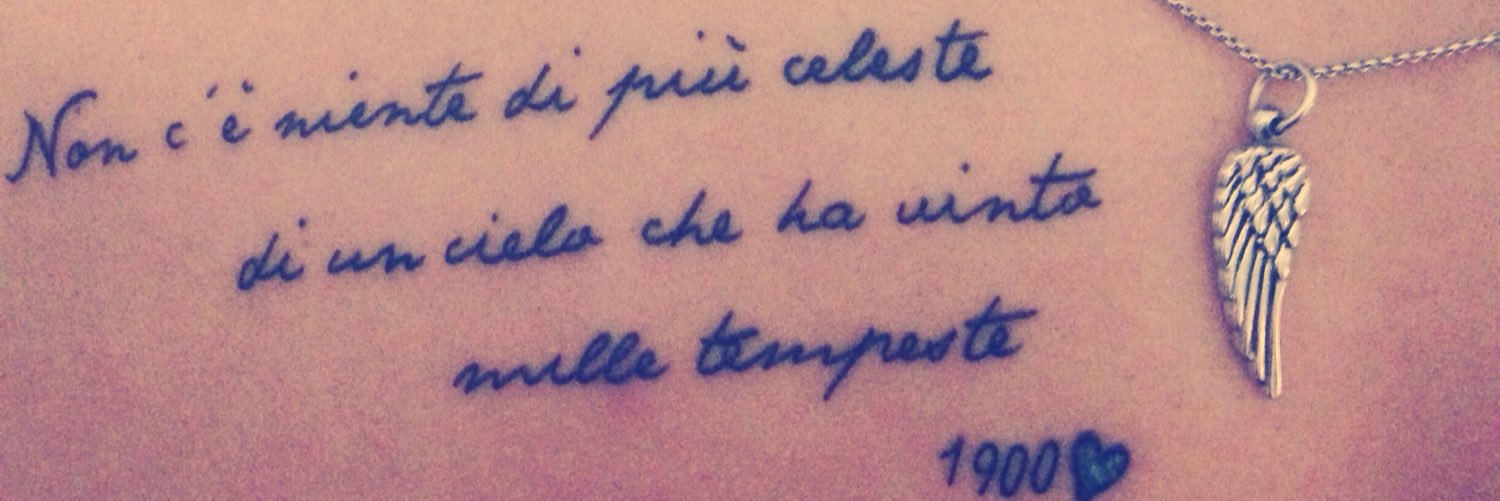 Non c'è niente di più celeste
di un cielo che ha vinto
mille tempeste
1900